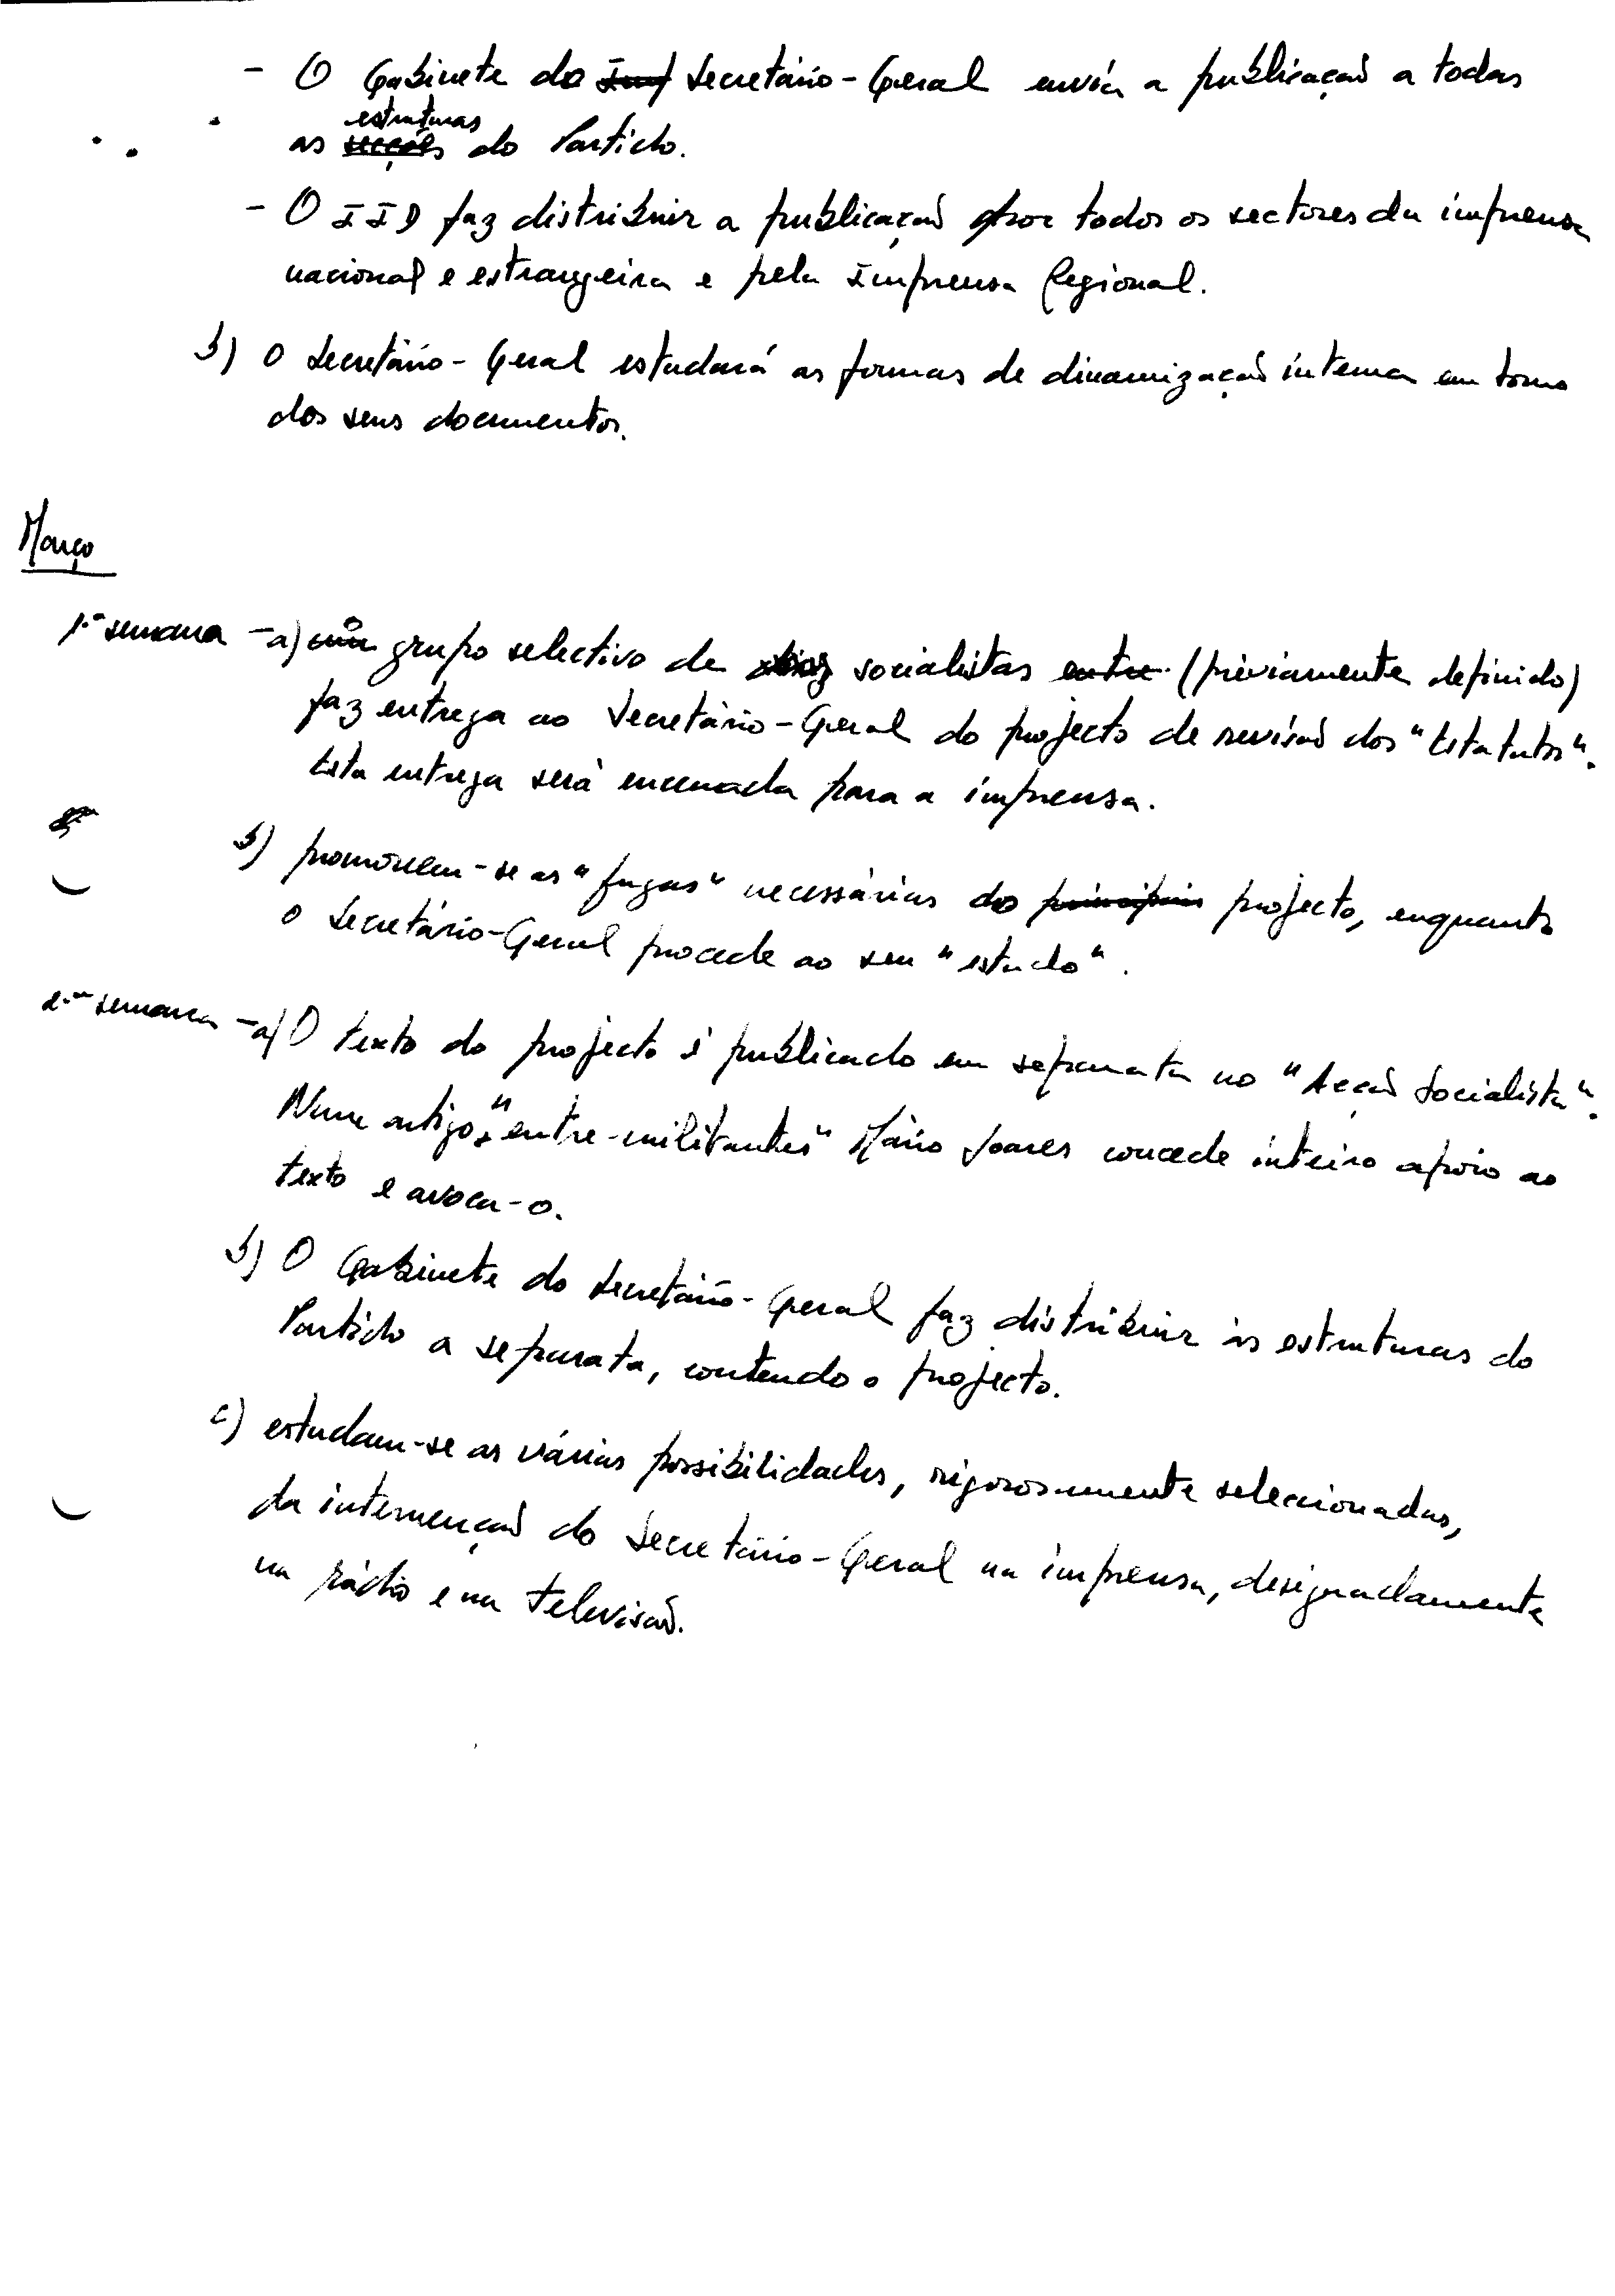 - O Gabinete do Secretário-Geral envia a publicação a todas
estruturas
as secções do Partido.
- O IID faz distribuir a publicação por todos os sectores da imprensa
nacional e estrangeira e pela Imprensa Regional.
b) O Secretário-Geral estudará as formas de dinamização interna em torno
dos seus documentos.
Março
1.ª semana - a) um grupo selectivo de socialistas entre (préviamente definido)
faz entrega ao Secretário-Geral do projecto de revisão dos "Estatutos".
Esta entrega será encenada para a imprensa.
b) promovem-se as "fugas" necessárias do principais projecto, enquanto
o Secretário-Geral procede ao seu "estudo".
2.ª semana - a) O texto do projecto é publicado em separata no "Acção Socialista".
Num artigo "entre-militantes" Mário Soares concede inteiro apoio ao
texto e avoca-o.
b) O Gabinete do Secretário-Geral faz distribuir às estruturas do
Partido a separata, contendo o projecto.
c) estudam-se as várias possibilidades, rigorosamente seleccionadas,
da intervenção do Secretário-Geral na imprensa, designadamente
na rádio e na televisão.